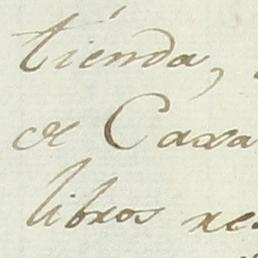 tienda,
de Caxa
libros re